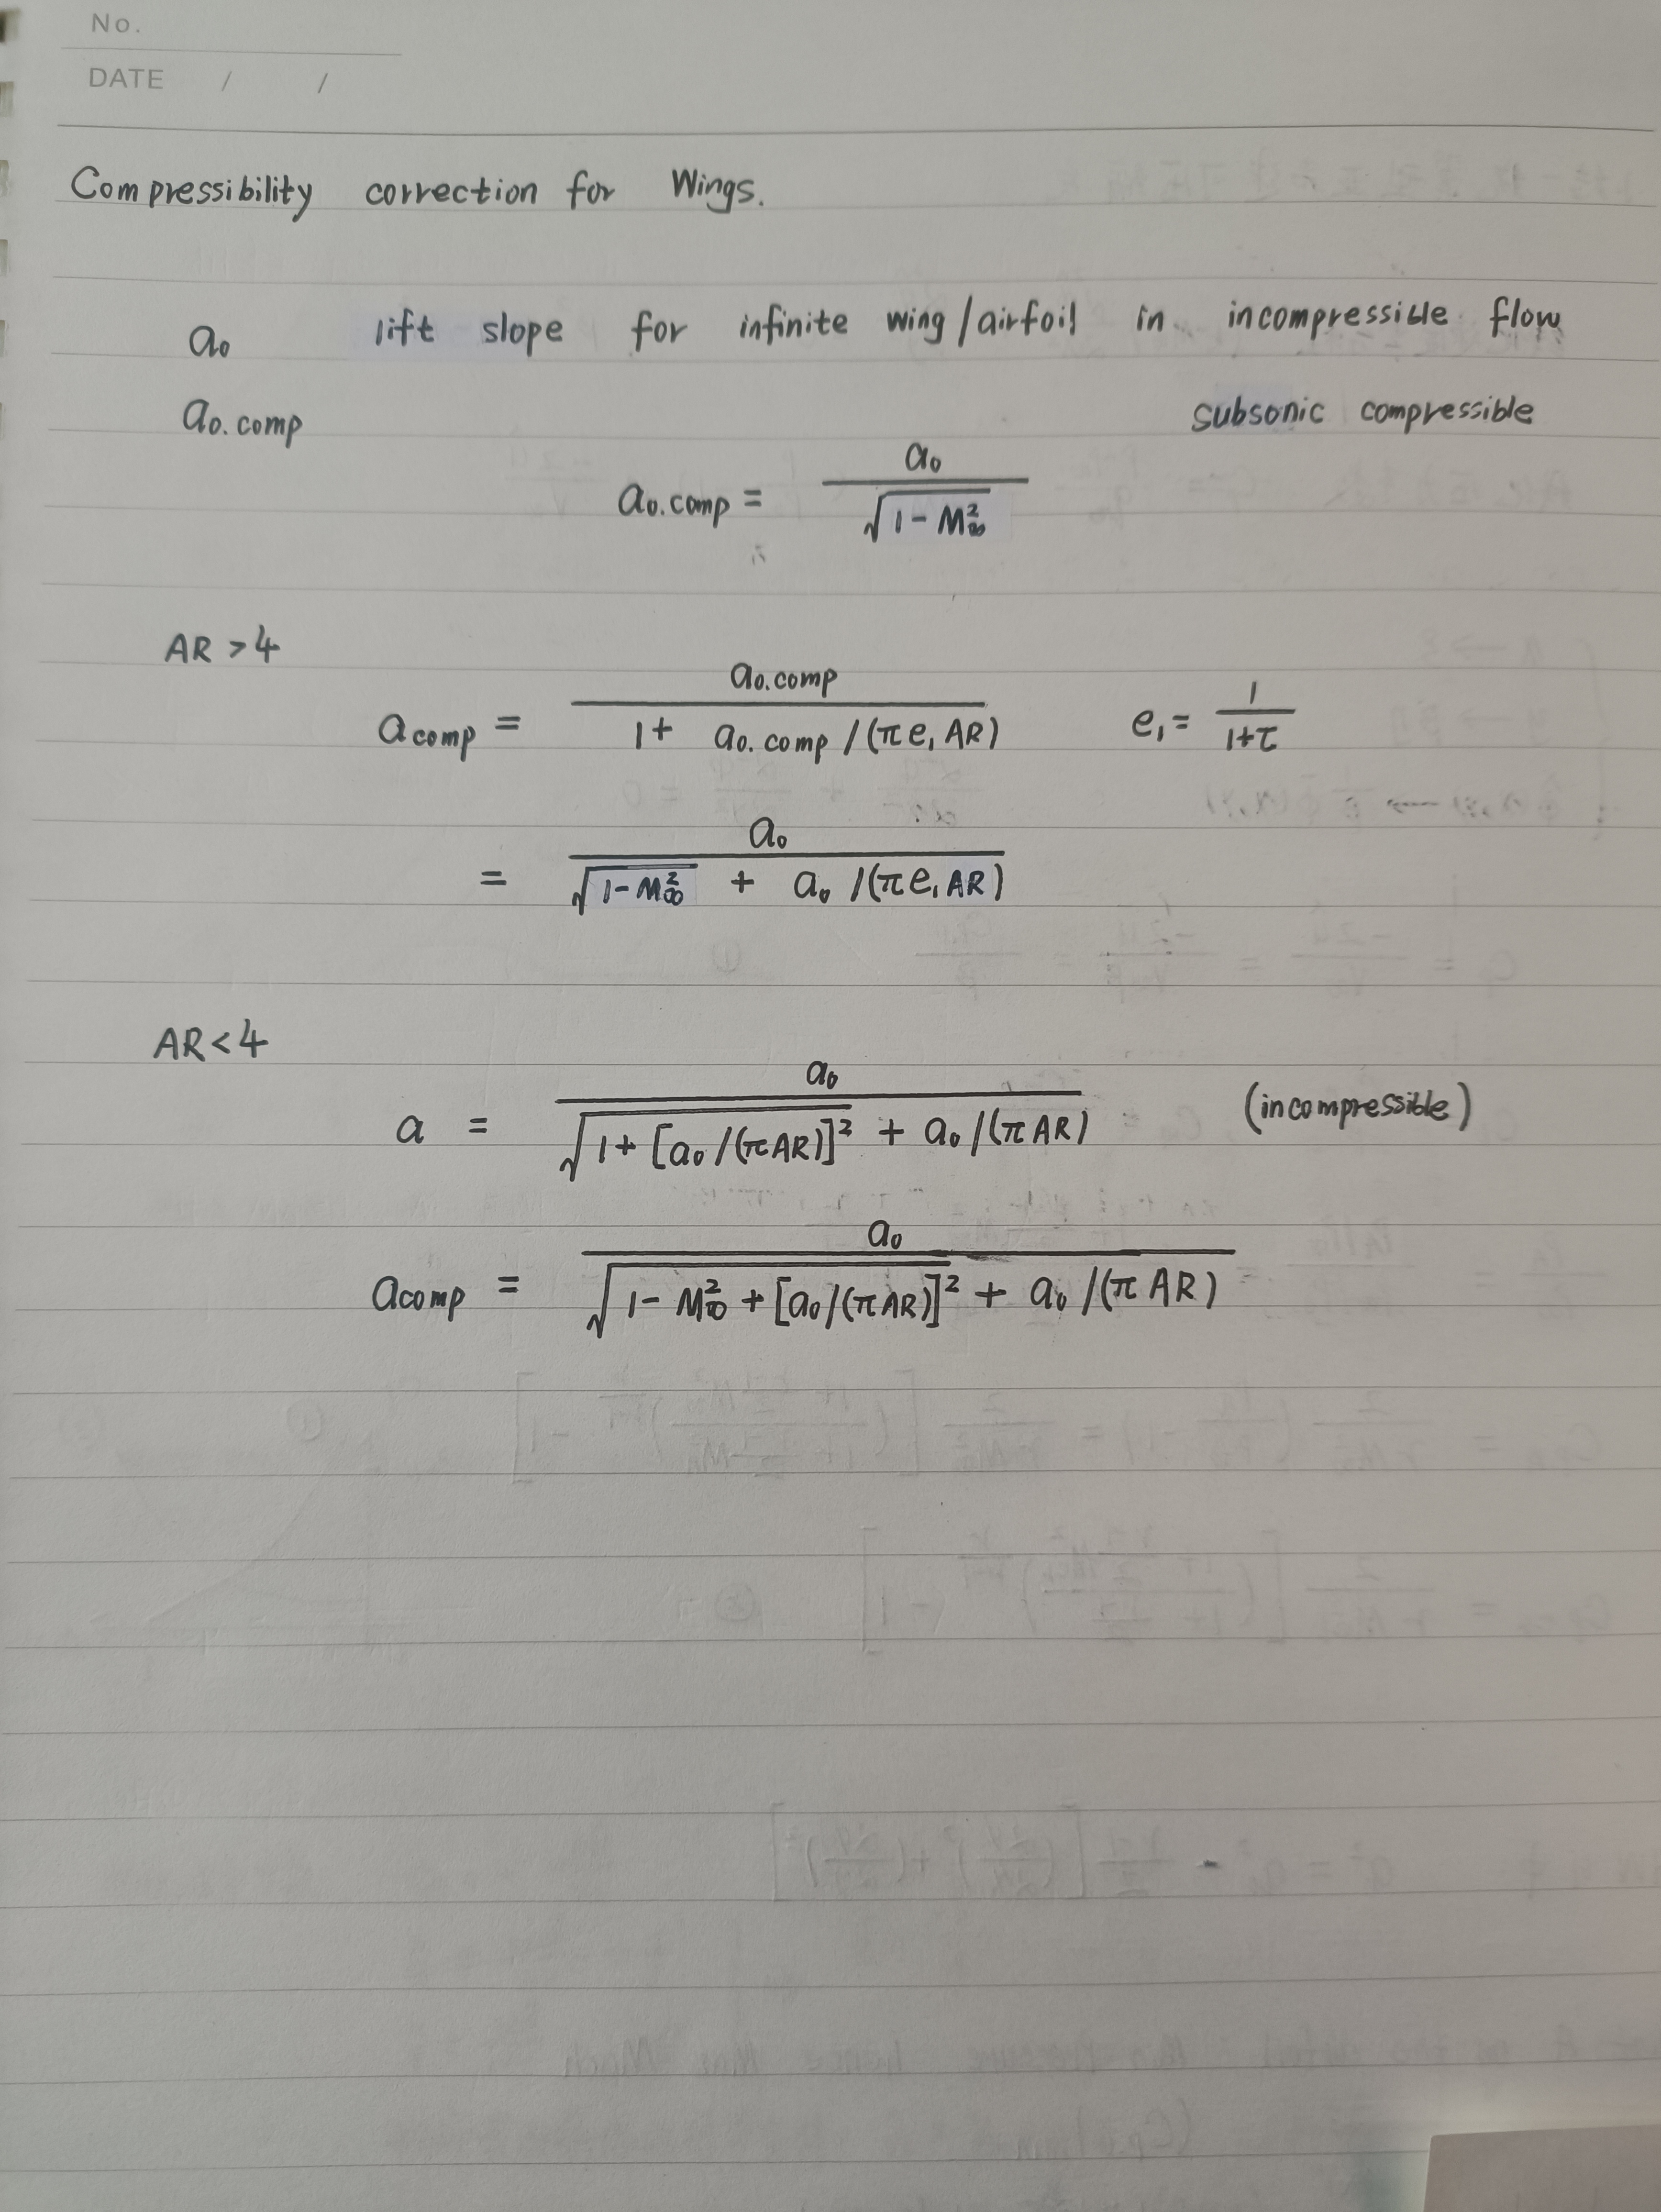 No.
DATE / /
Compressibility correction for Wings.
a₀ lift slope for infinite wing/airfoil in incompressible flow
a₀.comp subsonic compressible
a₀.comp = a₀ / √(1 - M∞²)
AR > 4
a comp = a₀.comp / (1 + a₀.comp / (π e₁ AR)) e₁ = 1 / (1+τ)
= a₀ / (√(1 - M∞²) + a₀ / (π e₁ AR))
AR < 4
a = a₀ / (√(1 + [a₀ / (π AR)]²) + a₀ / (π AR)) (incompressible)
a comp = a₀ / (√(1 - M∞² + [a₀ / (π AR)]²) + a₀ / (π AR))